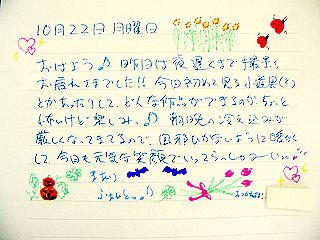 10月22日 月曜日
おはよう♪ 昨日は夜遅くまで撮影
お疲れさまでした!! 今日初めて見る小道具(?)
とかあったりして、どんな作品ができるかちょっと
怖いけど楽しみ♪ 朝晩の冷え込みが
厳しくなってきてるので、風邪ひかないように暖かく
して、今日も元気な笑顔でいってらっしゃーい